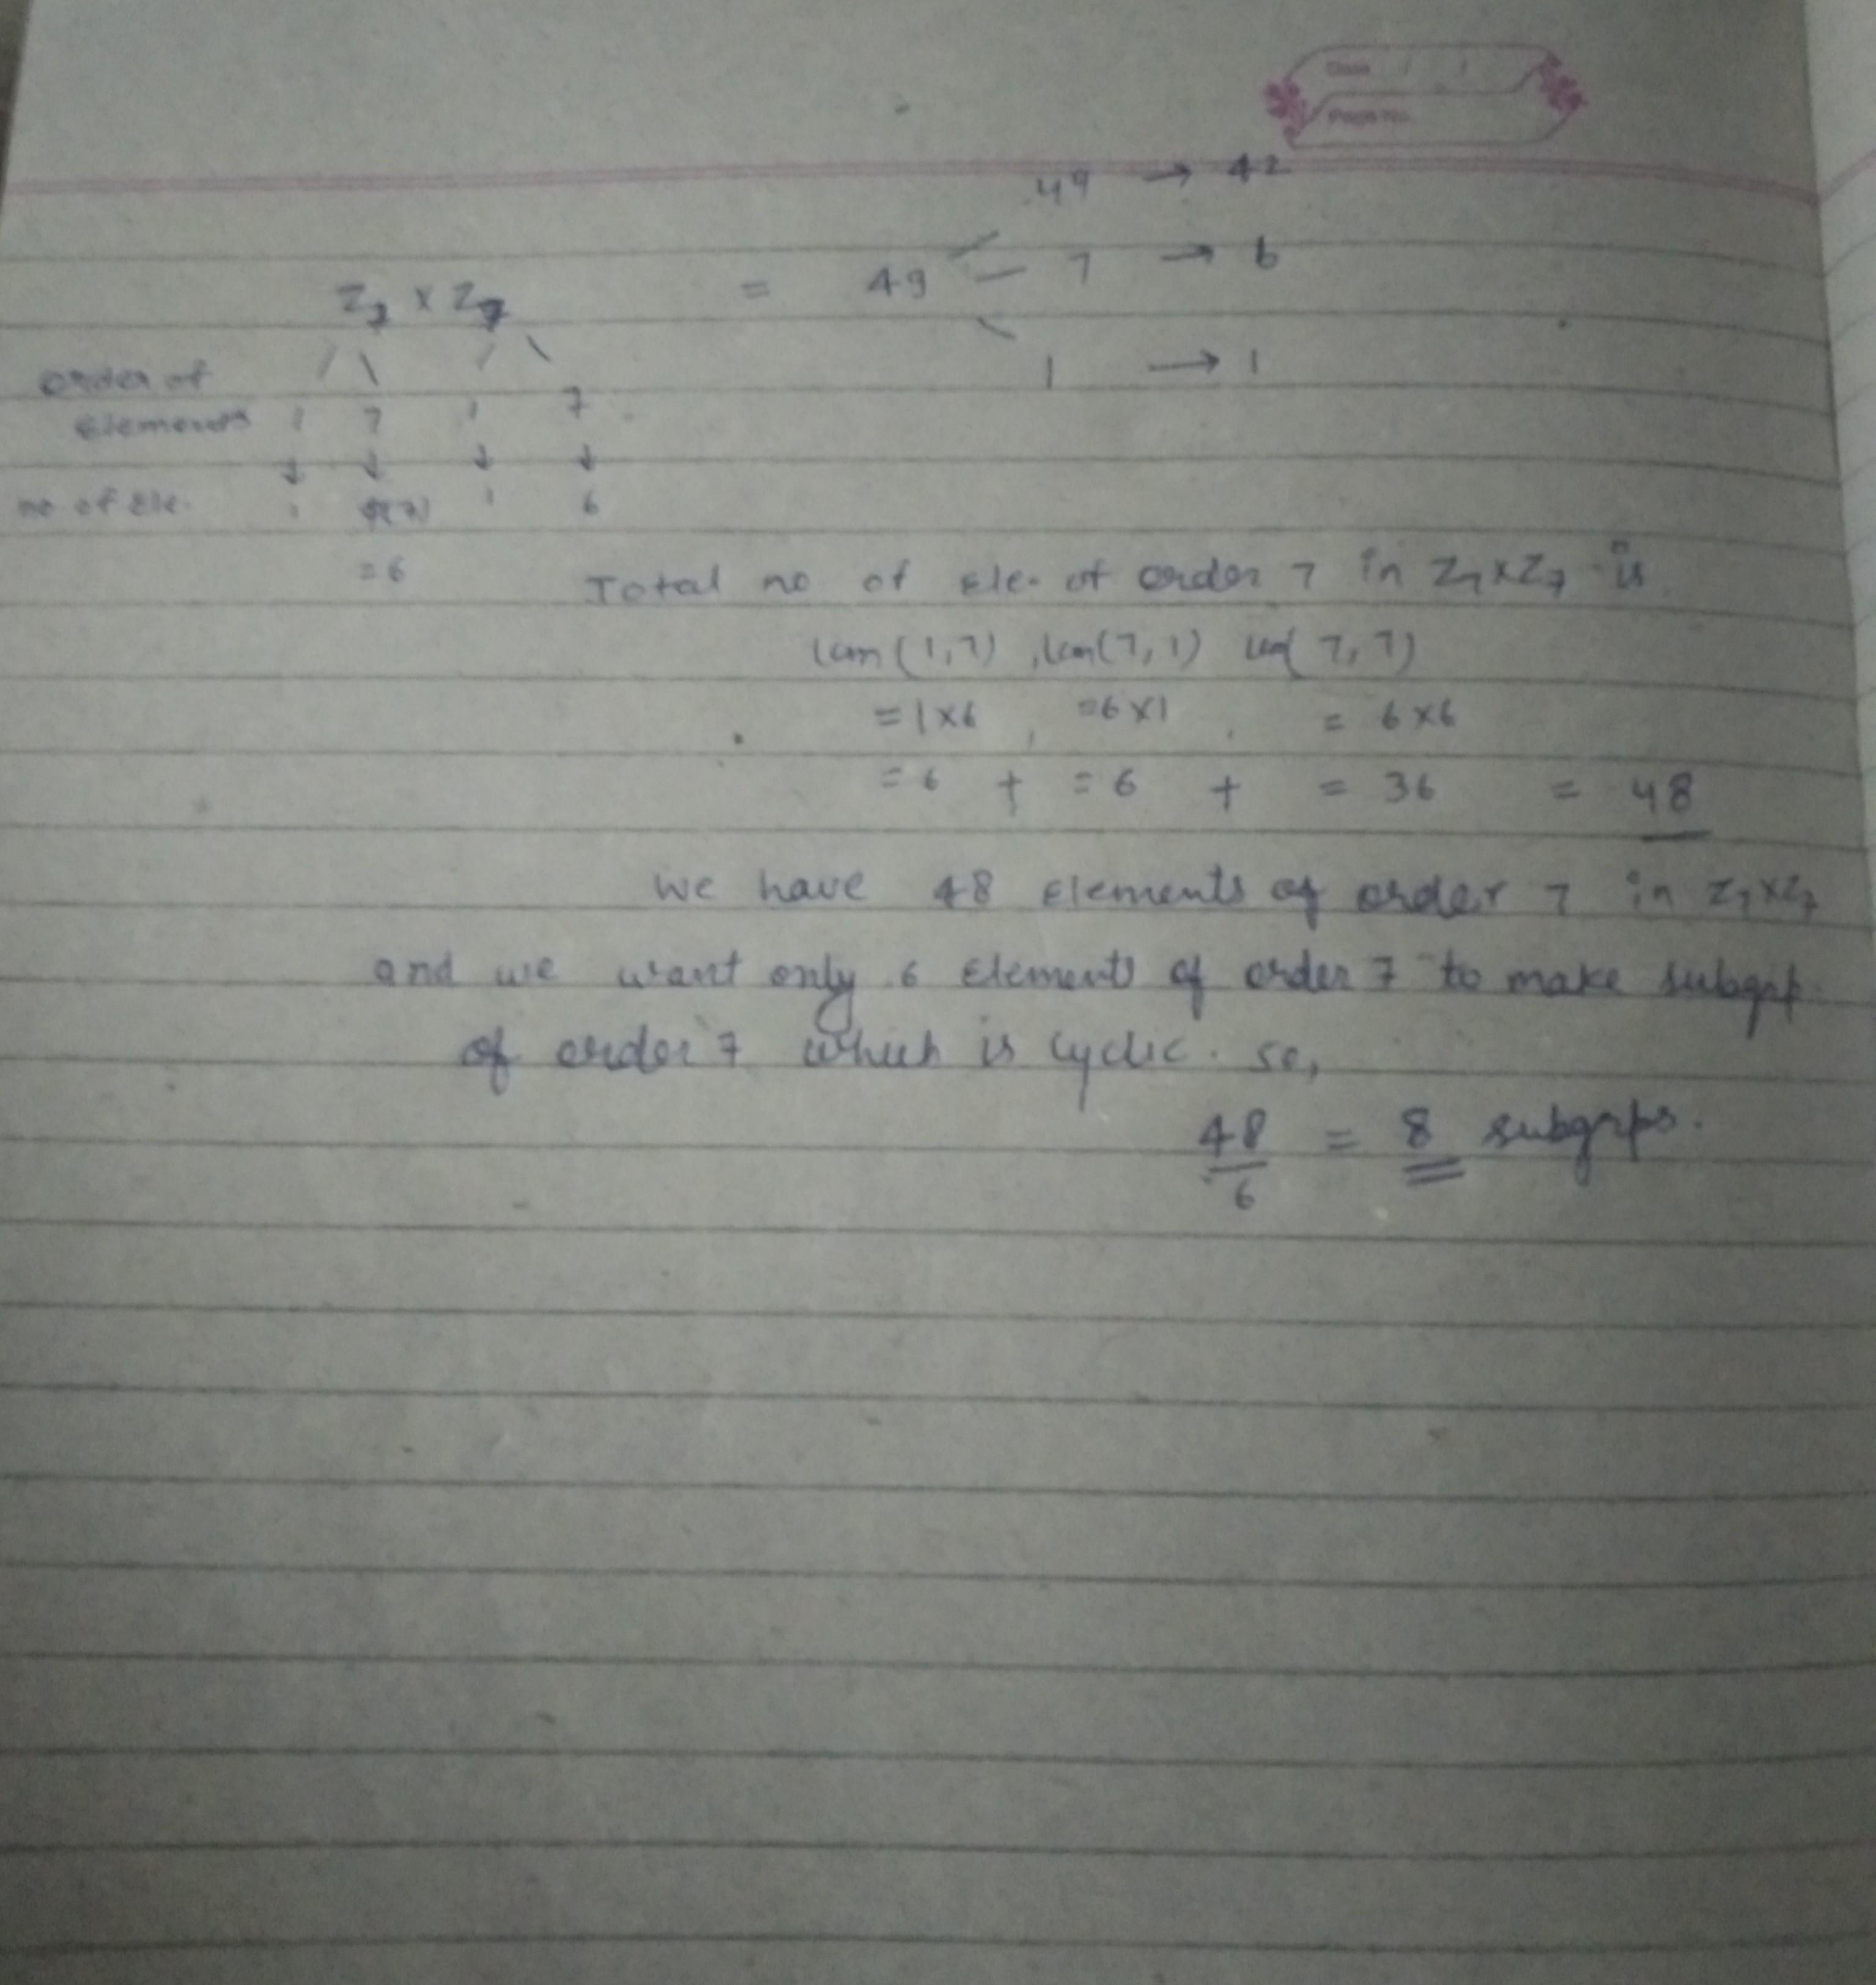 Date / /
Page No.
49 → 42
Z7 x Z7 = 49 - 7 → 6
1 → 1
order of
elements 1 7 1 7
↓ ↓ ↓ ↓
no of Ele. 1 φ(7) 1 6
= 6
Total no of Ele. of order 7 in Z7 x Z7 is
lcm (1,7) , lcm(7,1) lcm( 7,7)
= 1x6 , =6x1 , = 6x6
= 6 + = 6 + = 36 = 48
we have 48 Elements of order 7 in Z7xZ7
and we want only 6 Elements of order 7 to make subgrp.
of order 7 which is cyclic. so,
48/6 = 8 subgrps.